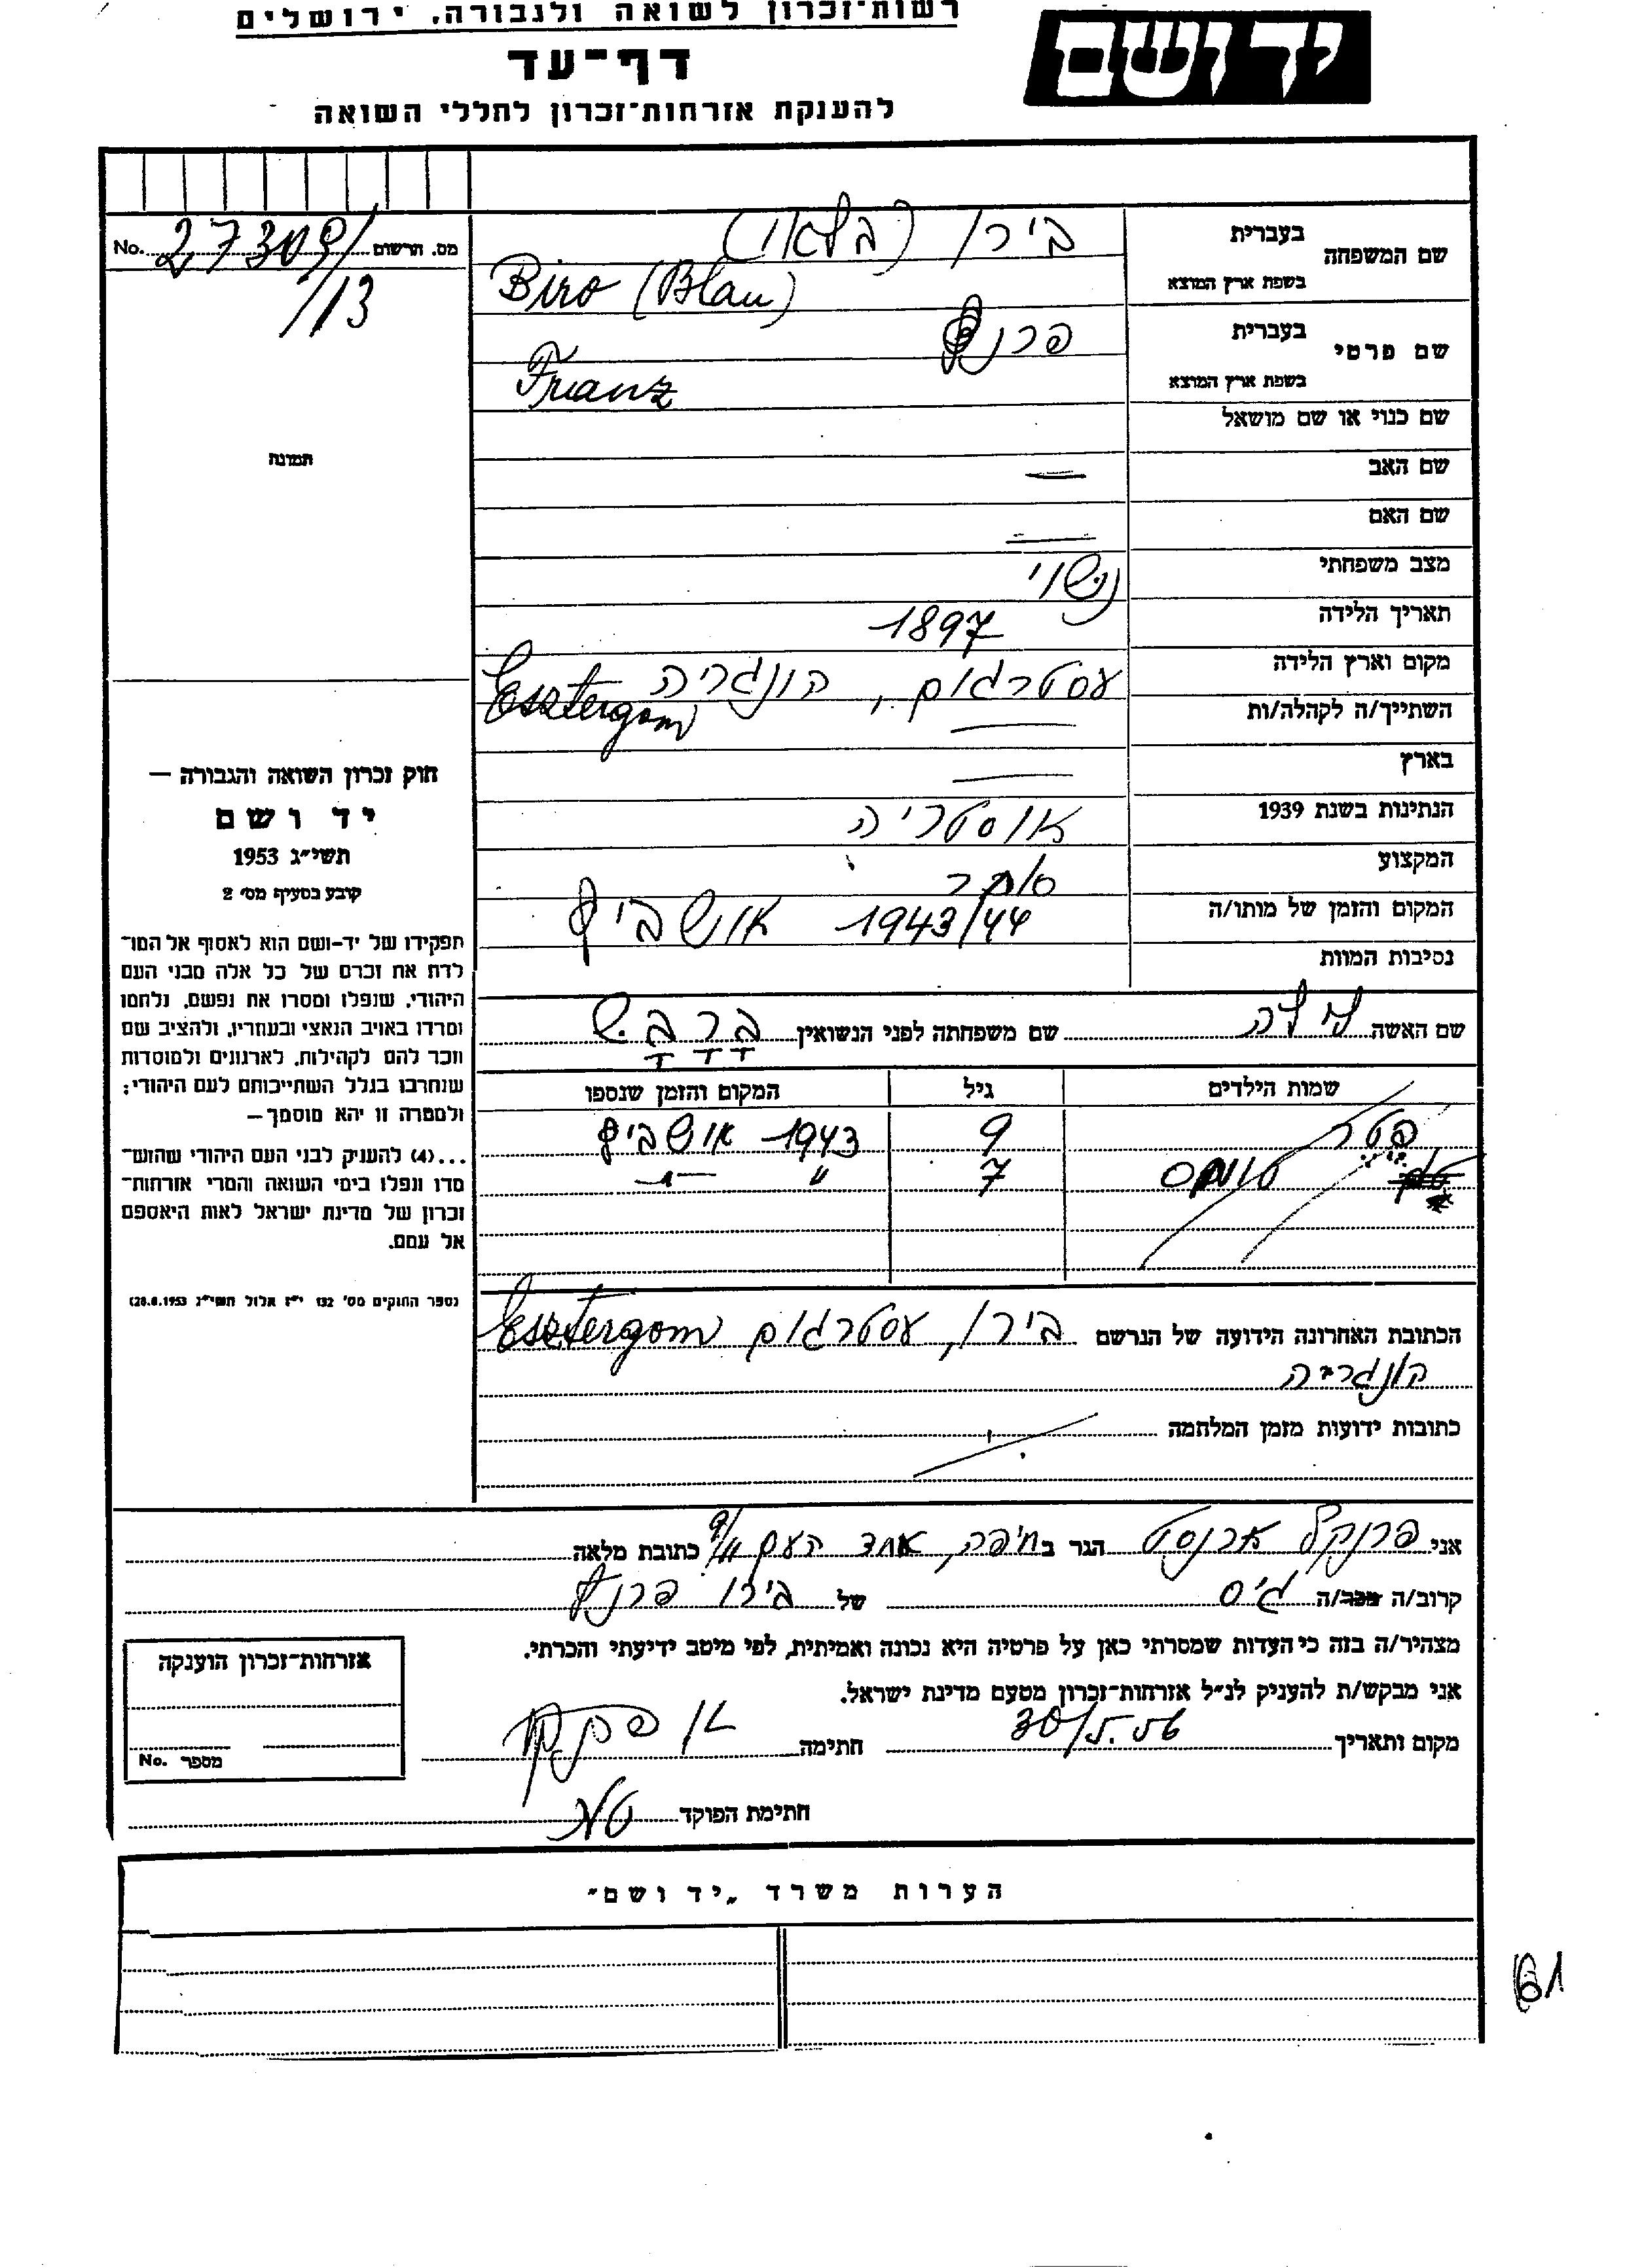 רשות־זכרון לשואה ולגבורה, ירושלים
יד ושם
דף־עד
להענקת אזרחות־זכרון לחללי השואה
No. 27309/ מס. הרשום
/113
תמונה
שם המשפחה
בעברית בירו (בלאו)
בשפת ארץ המוצא Biro (Blau)
שם פרטי
בעברית פרנץ
בשפת ארץ המוצא Franz
שם כנוי או שם מושאל
שם האב —
שם האם —
מצב משפחתי נשוי
תאריך הלידה 1897
מקום וארץ הלידה עסטרגום, הונגריה Esztergom
השתייך/ה לקהלה/ות —
בארץ —
הנתינות בשנת 1939 אוסטריה
המקצוע סוחר
המקום והזמן של מותו/ה 1943/44 אושביץ
נסיבות המוות
שם האשה שם משפחתה לפני הנשואין
שמות הילדים גיל המקום והזמן שנספו
פטר 9 1943 אושביץ
טומס 7 " —"—
הכתובת האחרונה הידועה של הנרשם בירו, עסטרגום Esztergom
הונגריה
כתובות ידועות מזמן המלחמה
חוק זכרון השואה והגבורה —
יד ושם
תשי״ג 1953
קובע בסעיף מס׳ 2
תפקידו של יד־ושם הוא לאסוף אל המו־
לדת את זכרם של כל אלה מבני העם
היהודי, שנפלו ומסרו את נפשם, נלחמו
ומרדו באויב הנאצי ובעוזריו, ולהציב שם
וזכר להם לקהילות, לארגונים ולמוסדות
שנחרבו בגלל השתייכותם לעם היהודי;
ולמטרה זו יהא מוסמך —
...(4) להעניק לבני העם היהודי שהוש־
מדו ונפלו בימי השואה והמרי אזרחות־
זכרון של מדינת ישראל לאות היאספם
אל עמם.
(ספר החוקים מס׳ 132 י״ז אלול תשי״ג 28.8.1953)
אני פרנקל ארנסט הגר ב חיפה, אחד העם 9/11 כתובת מלאה
קרוב/ה מכר/ה גיס של בירו פרנץ
מצהיר/ה בזה כי העדות שמסרתי כאן על פרטיה היא נכונה ואמיתית, לפי מיטב ידיעתי והכרתי.
אני מבקש/ת להעניק לנ״ל אזרחות־זכרון מטעם מדינת ישראל.
מקום ותאריך 30/5.56 חתימה
חתימת הפוקד
אזרחות־זכרון הוענקה
מספר No.
הערות משרד „יד ושם״
61